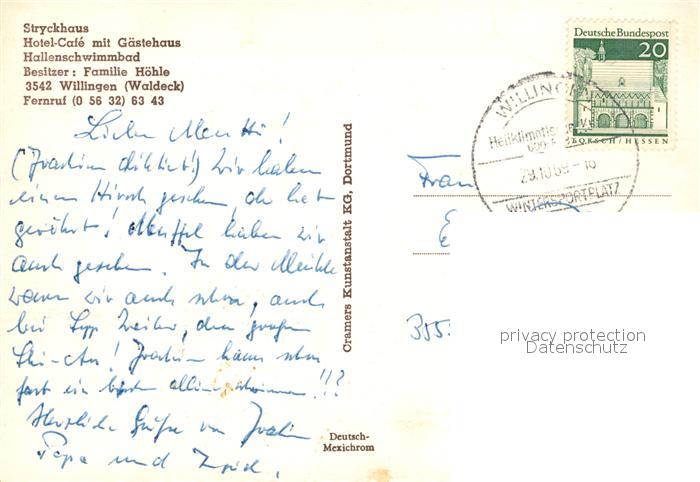 Stryckhaus
Hotel-Café mit Gästehaus
Hallenschwimmbad
Besitzer: Familie Höhle
3542 Willingen (Waldeck)
Fernruf (0 56 32) 63 43
Liebe Mutti!
(Joachim diktiert!) Wir haben
einen Hirsch gesehen, der hat
geröhrt! Muffel haben wir
auch gesehen. In der Mühle
waren wir auch schon, auch
bei Weiler, dem großen
Ski-! Joachim kann schon
fast ein bißchen allein schwimmen!!?
Herzliche Grüße von Joachim
Papa und
Cramers Kunstanstalt KG, Dortmund
Deutsch-
Mexichrom
Deutsche Bundespost
20
LORSCH/HESSEN
WILLINGEN
Heilklimatischer
29.10.69-16
WINTERSPORTPLATZ
Frau
E
355
privacy protection
Datenschutz